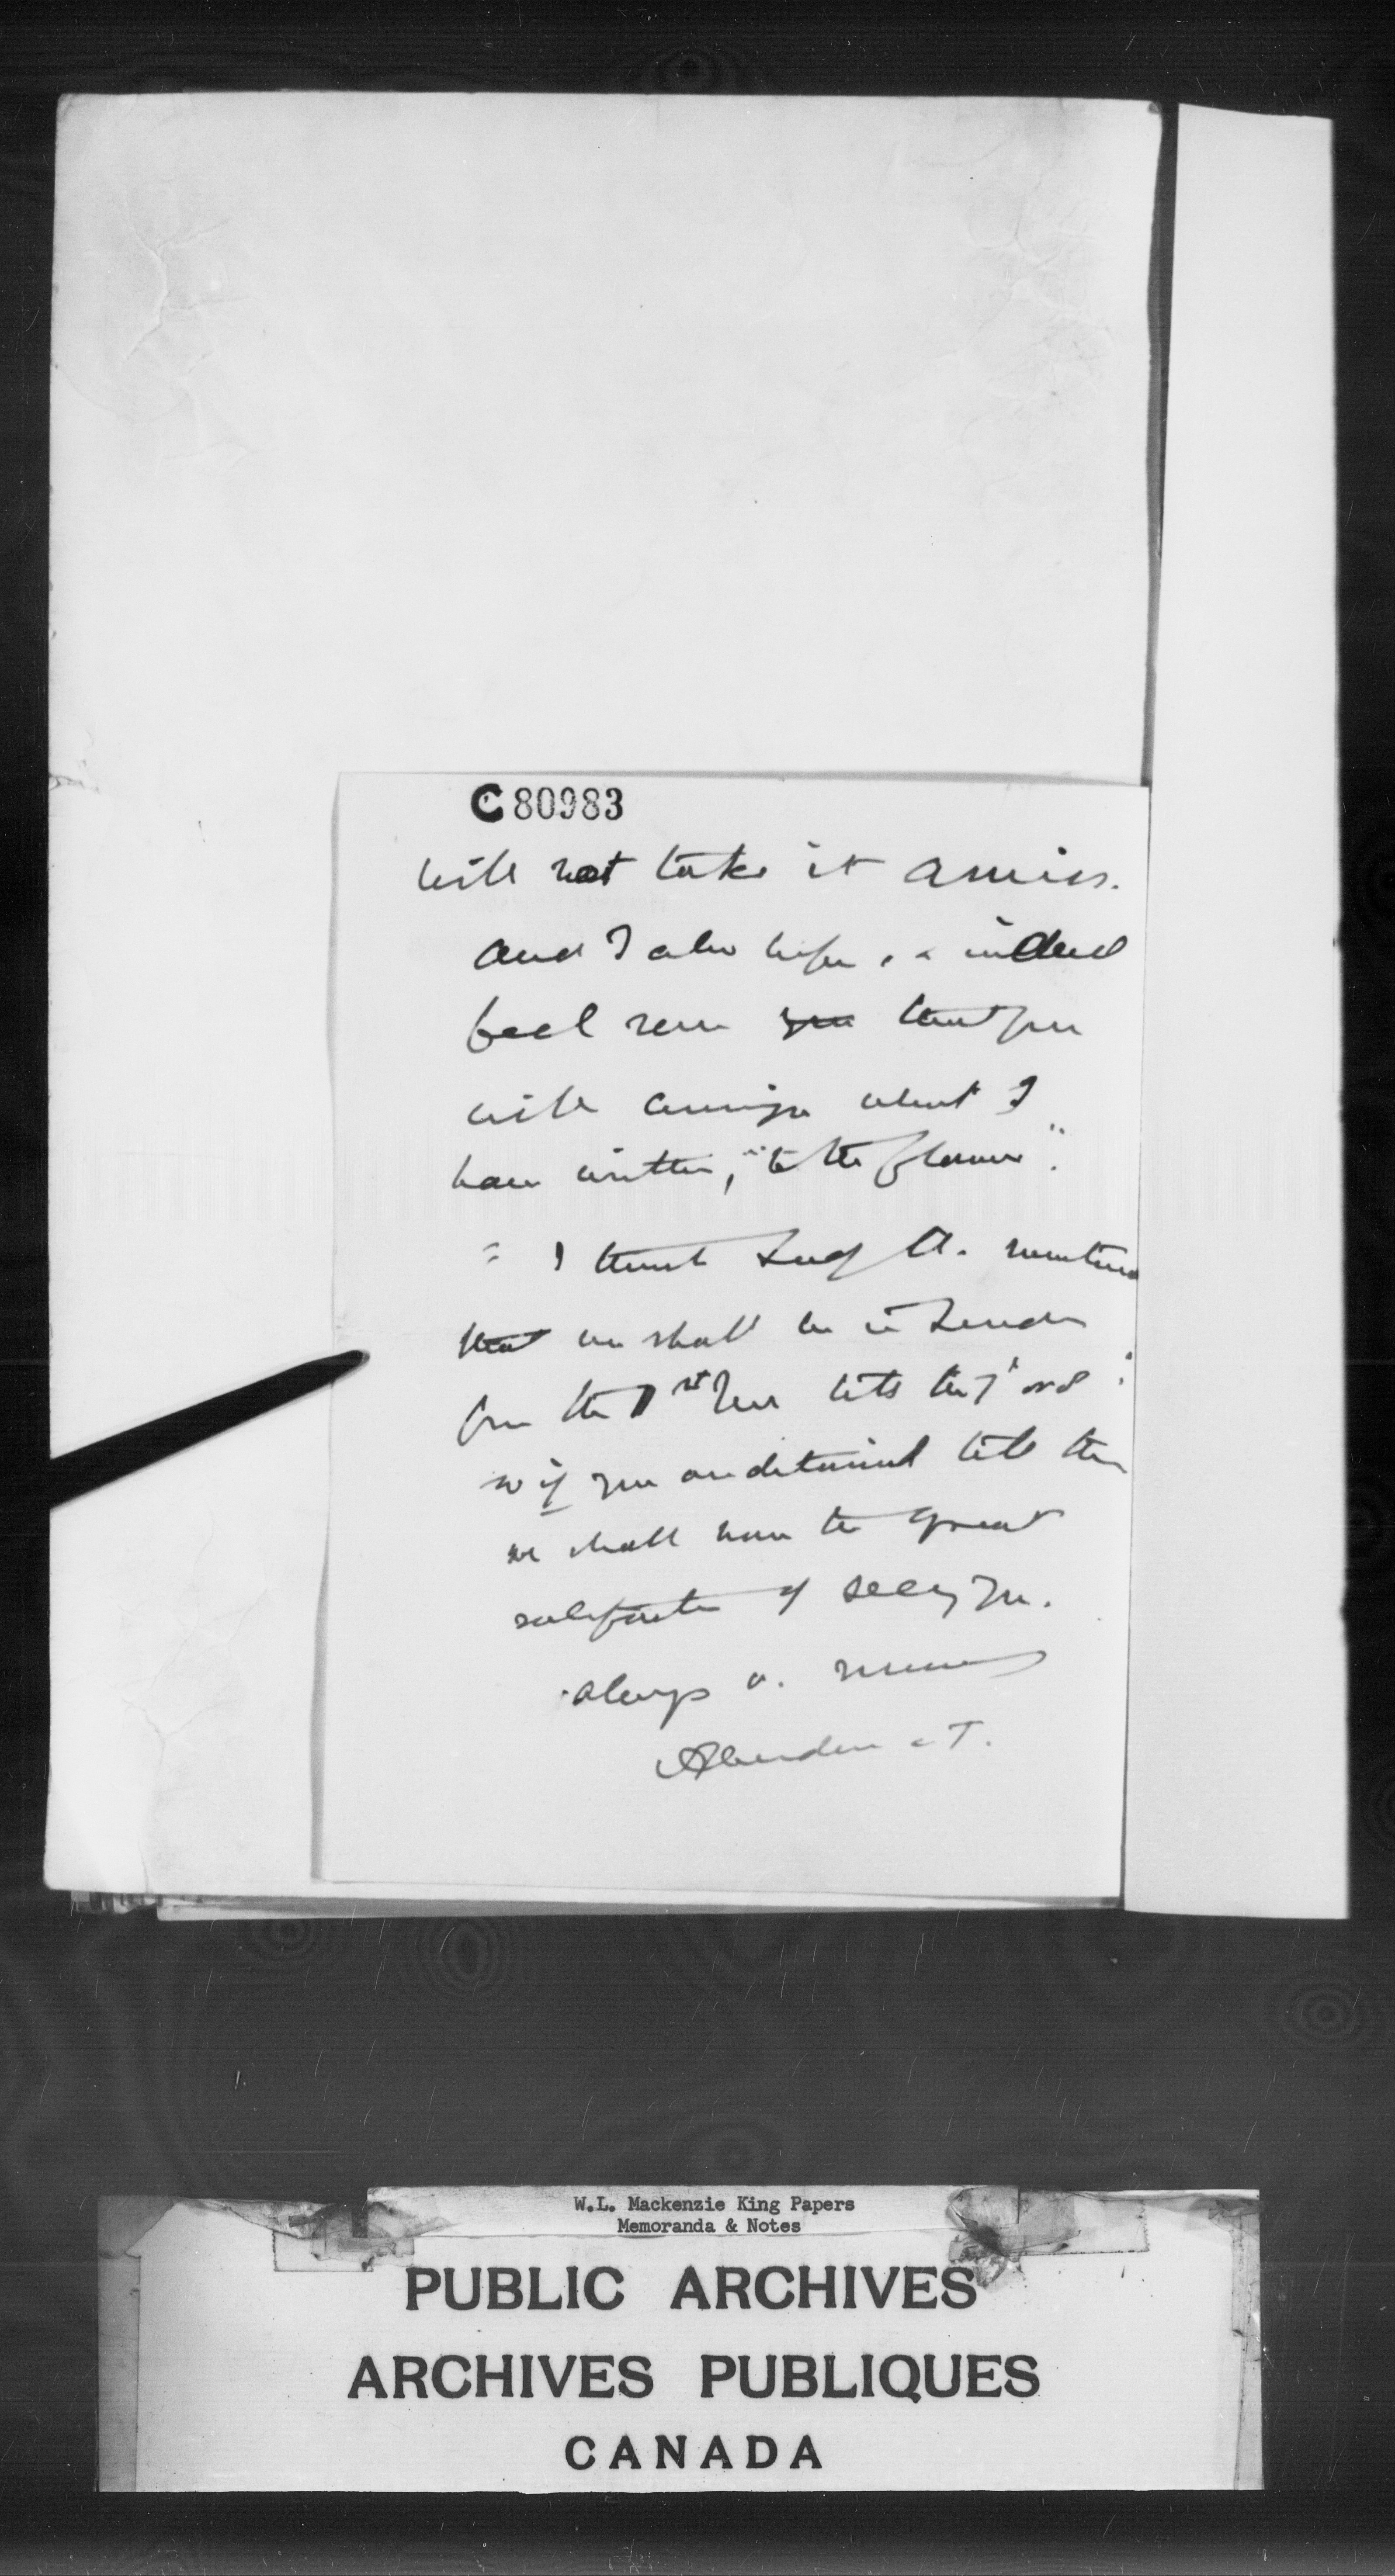 C 80983
will not take it amiss.
And I also hope, & indeed
feel sure you that you
will consign what I
have written, "to the flames".
= I think Lady A. mentioned
that we shall be in London
from the 1st Nov till the 7th or 8
so if you are detained till then
we shall have the great
satisfaction of seeing you.
Always v. sincerely
Aberdeen & T.
W.L. Mackenzie King Papers
Memoranda & Notes
PUBLIC ARCHIVES
ARCHIVES PUBLIQUES
CANADA